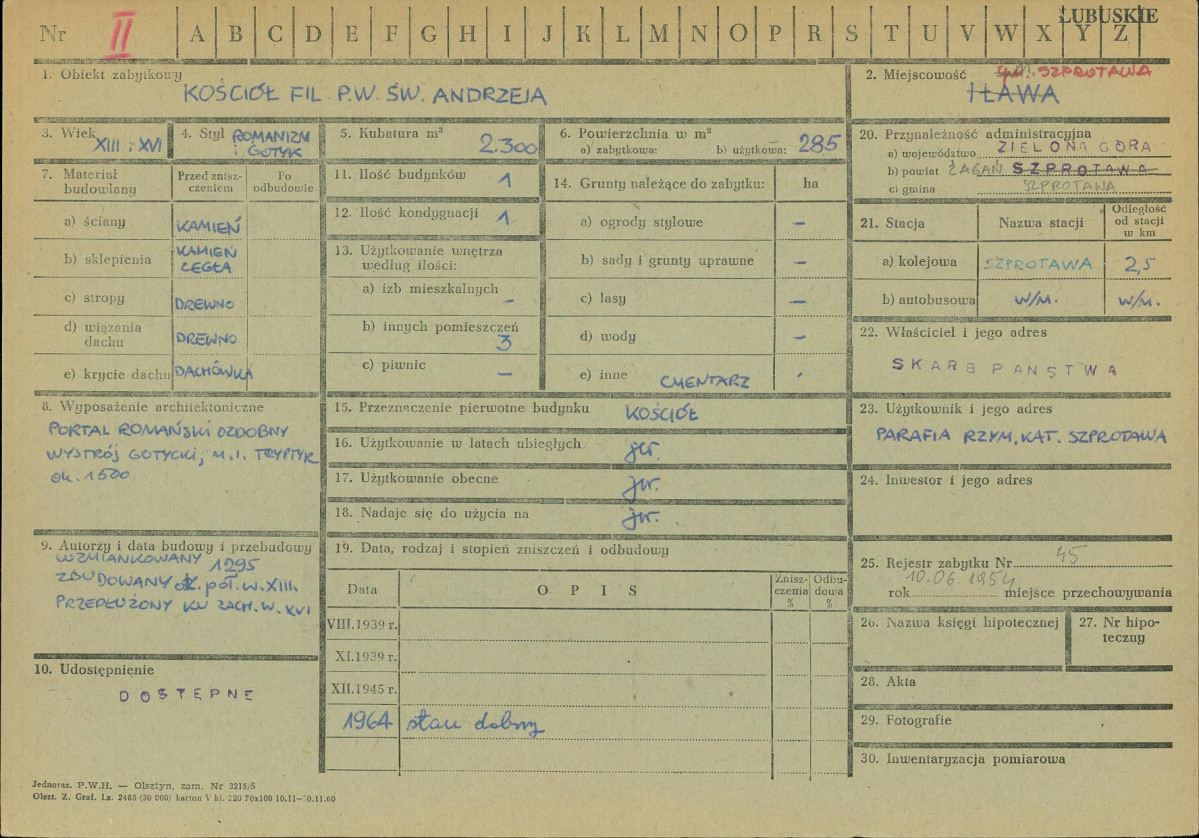 ŁUBUSKIE
Nr II A B C D E F G H I J K L M N O P R S T U V W X Y Z
1. Obiekt zabytkowy
KOŚCIÓŁ FIL. P.W. ŚW. ANDRZEJA
2. Miejscowość gm. SZPROTAWA
IŁAWA
3. Wiek XIII i XVI
4. Styl ROMANIZM
i GOTYK
5. Kubatura m³ 2.300
6. Powierzchnia w m²
a) zabytkowa: b) użytkowa: 285
7. Materiał budowlany
Przed zniszczeniem
Po odbudowie
a) ściany KAMIEŃ
b) sklepienia KAMIEŃ
CEGŁA
c) stropy DREWNO
d) wiązania dachu DREWNO
e) krycie dachu DACHÓWKA
8. Wyposażenie architektoniczne
PORTAL ROMAŃSKI OZDOBNY
WYSTRÓJ GOTYCKI, M.I. TRYPTYK
ok. 1500
9. Autorzy i data budowy i przebudowy
WZMIANKOWANY 1295
ZBUDOWANY ok. poł. w. XIII.
PRZEDŁUŻONY KU ZACH. W. XVI
10. Udostępnienie
DOSTĘPNE
11. Ilość budynków 1
12. Ilość kondygnacji 1
13. Użytkowanie wnętrza
według ilości:
a) izb mieszkalnych –
b) innych pomieszczeń
3
c) piwnic –
14. Grunty należące do zabytku: ha
a) ogrody stylowe –
b) sady i grunty uprawne –
c) lasy –
d) wody –
e) inne CMENTARZ
15. Przeznaczenie pierwotne budynku KOŚCIÓŁ
16. Użytkowanie w latach ubiegłych jw.
17. Użytkowanie obecne jw.
18. Nadaje się do użycia na jw.
19. Data, rodzaj i stopień zniszczeń i odbudowy
Data OPIS Zniszczenia % Odbudowa %
VIII.1939 r.
XI.1939 r.
XII.1945 r.
1964 stan dobry
20. Przynależność administracyjna
a) województwo ZIELONA GÓRA
b) powiat ŻAGAŃ SZPROTAWA
c) gmina SZPROTAWA
21. Stacja Nazwa stacji Odległość od stacji w km
a) kolejowa SZPROTAWA 2,5
b) autobusowa w/m. w/m.
22. Właściciel i jego adres
SKARB PAŃSTWA
23. Użytkownik i jego adres
PARAFIA RZYM. KAT. SZPROTAWA
24. Inwestor i jego adres
25. Rejestr zabytku Nr 45
10.06.1954
rok miejsce przechowywania
26. Nazwa księgi hipotecznej
27. Nr hipoteczny
28. Akta
29. Fotografie
30. Inwentaryzacja pomiarowa
Jednoraz. P.W.H. — Olsztyn, zam. Nr 3215/S
Olszt. Z. Graf. Lz. 2485 (30 000) karton V kl. 220 70x100 10.11—30.11.60